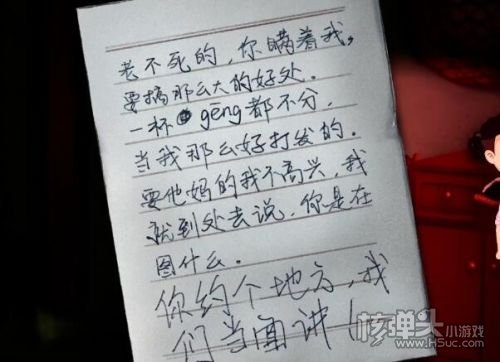 老不死的，你瞒着我，
要搞那么大的好处.
一杯gēng都不分，
当我那么好打发的.
要他妈的我不高兴，我
就到处去说.你是在
图什么.
你约个地方，我
们当面讲！
核弹头小游戏
www.H5uc.com